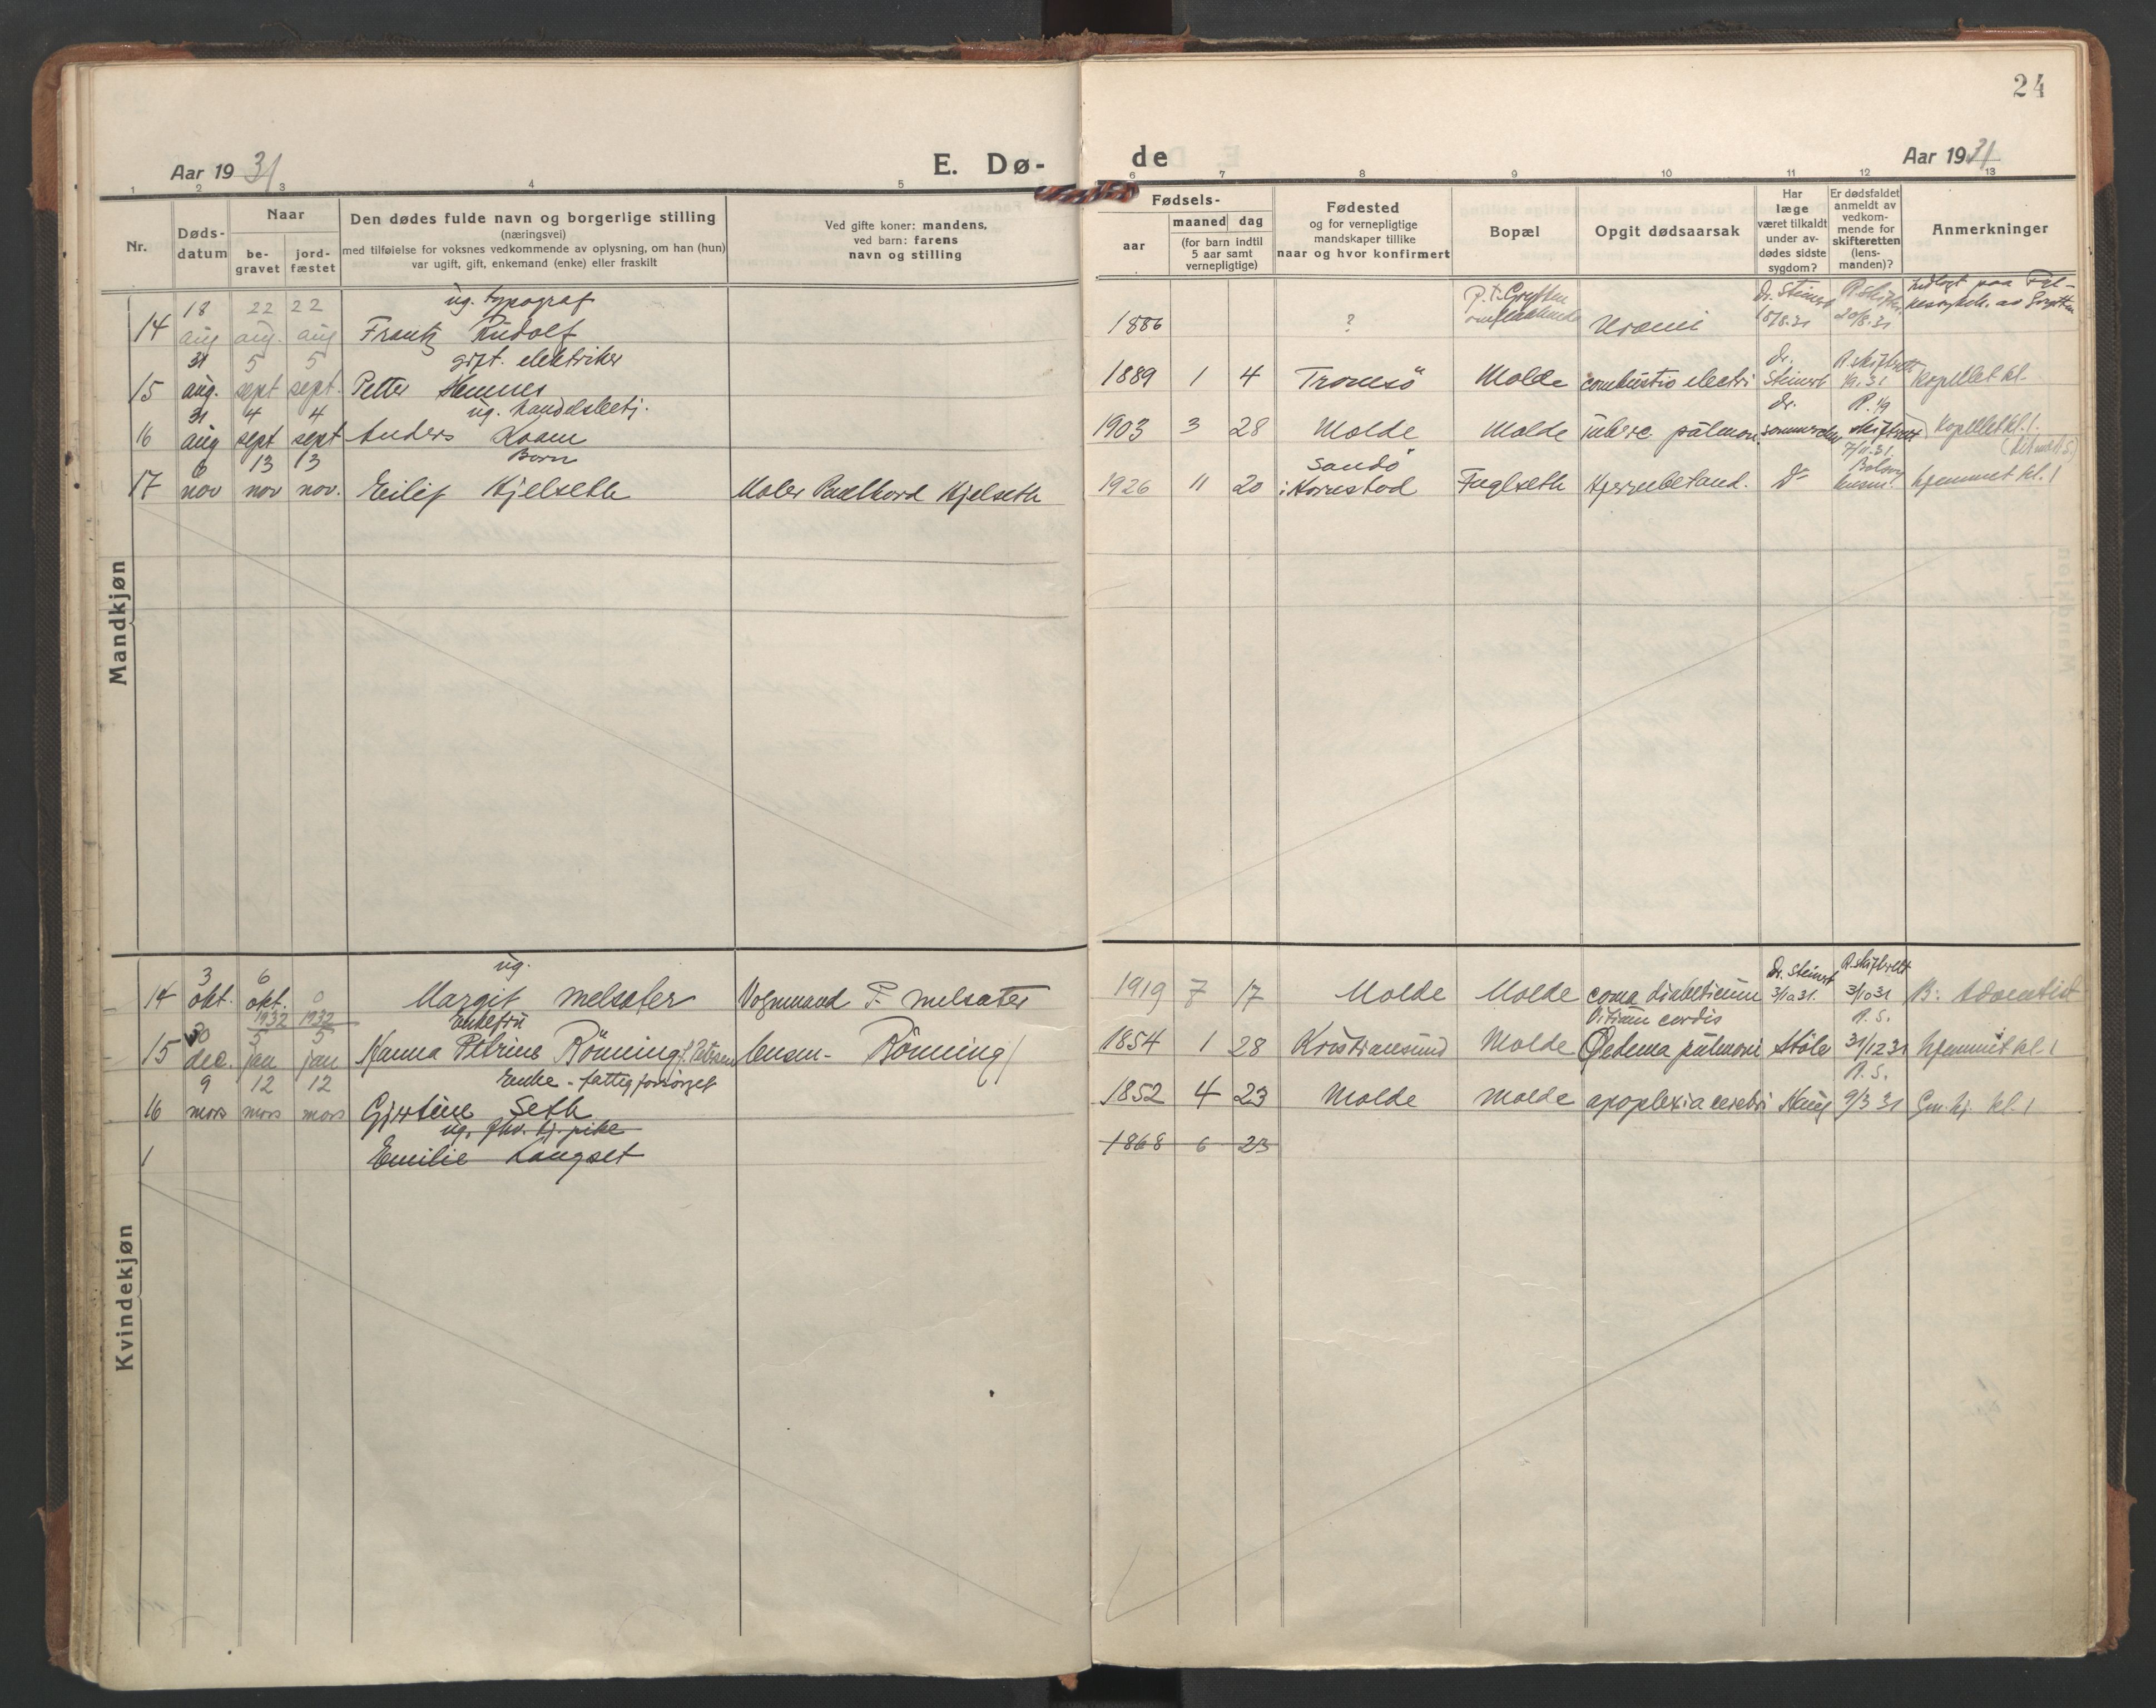 24
Aar 1931
E. Dø-
de
Aar 1931
1 2 3 4 5 6 7 8 9 10 11 12 13
Nr.
Døds-
datum
Naar
be-
gravet
jord-
fæstet
Den dødes fulde navn og borgerlige stilling
(næringsvei)
med tilføielse for voksnes vedkommende av oplysning, om han (hun)
var ugift, gift, enkemand (enke) eller fraskilt
Ved gifte koner: mandens,
ved barn: farens
navn og stilling
Fødsels-
aar
maaned dag
(for barn indtil
5 aar samt
vernepligtige)
Fødested
og for vernepligtige
mandskaper tillike
naar og hvor konfirmert
Bopæl
Opgit dødsaarsak
Har
læge
været tilkaldt
under av-
dødes sidste
sygdom?
Er dødsfaldet
anmeldt av
vedkom-
mende for
skifteretten
(lens-
manden)?
Anmerkninger
Mandkjøn
18 22 22 ug. typograf P. t. Dr. Steinert
14 aug aug. aug Frantz Rudolf 1886 ? Uræmi 18/8.31 20/8.31
31 5 5 gift. elektriker dr.
15 aug. sept sept. Petter Hannes 1889 1 4 Tromsö Molde combustio electri Steinert 1/9.31 kapellet kl.
31 4 4 ug. handelsbetj. dr. 1/9
16 aug sept sept Anders 1903 3 28 Molde Molde tuberc. pulmon. skifteret kapellet kl. 1.
6 13 13 Barn Sandö 7/11.31.
17 nov nov nov. Eilif Hjelseth Maler Hjelseth 1926 11 20 Fuglseth Hjernebetænd. Dr hjemmet kl. 1
Kvindekjøn
3 6 ug. Dr. Steinert
14 okt. okt. 0 Margit Melsæter Vognmand P. Melsæter 1919 7 17 Molde Molde coma diabeticum 3/10 31. 3/10 31 B. Adventist
30 1932 5 1932 5 Enkefru Vitium cordis R. S.
15 dec. jan jan Hanna Petrine Rönning f. Petersen Rönning 1854 1 28 Kristiansund Molde Oedema pulmoni 31/12 31 hjemmet kl. 1
9 12 12 Enke - fattigforsörget R. S.
16 mars mars mars Gjertine Seth 1852 4 23 Molde Molde apoplexia cerebri Haug 9/3 31 kl. 1
ug. fhv. tj. pike
1 Emilie Langset 1868 6 23